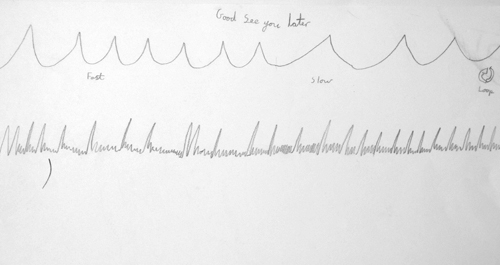 Good See you Later
Fast
Slow
Loop